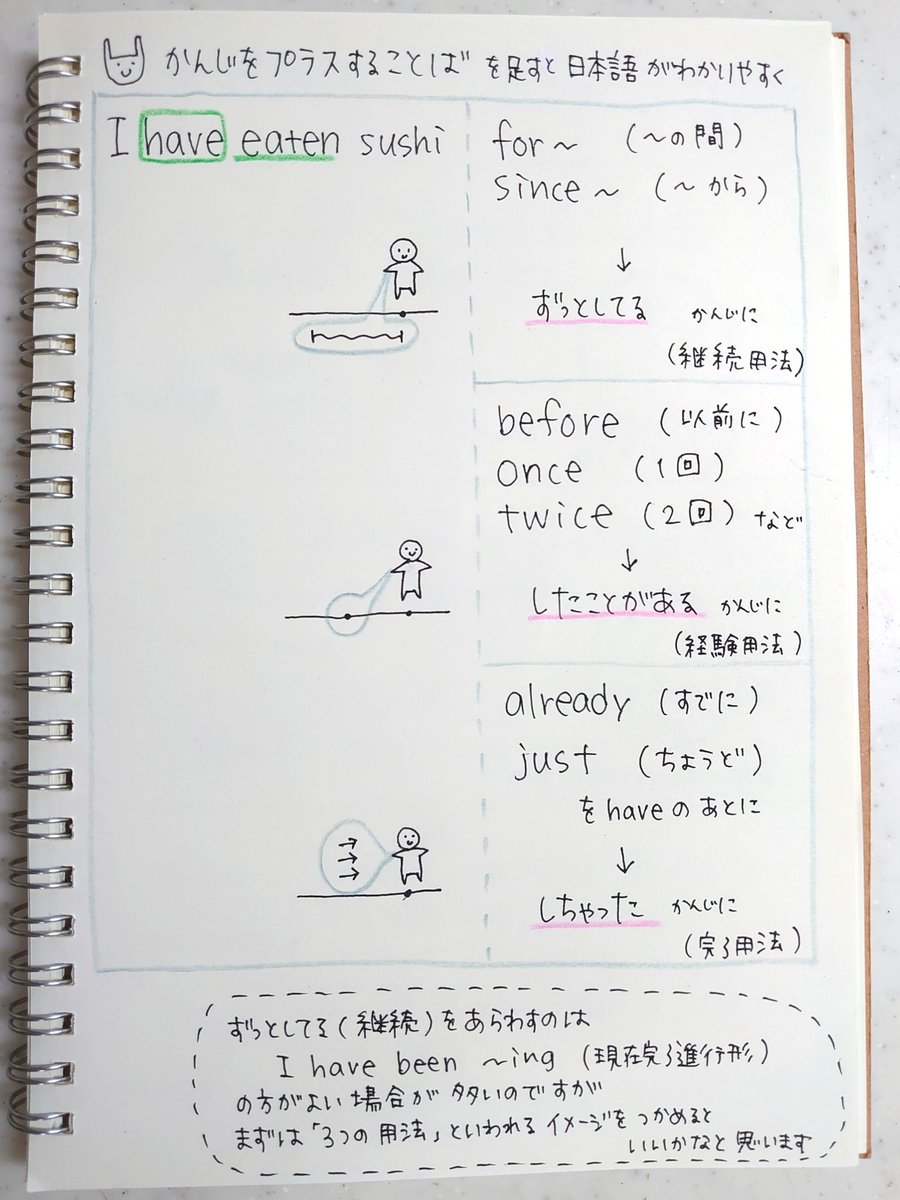 かんじをプラスすることば を足すと 日本語 がわかりやすく
I have eaten sushi
for～ (～の間)
since～ (～から)
↓
ずっとしてる かんじに
(継続用法)
before (以前に)
once (1回)
twice (2回) など
↓
したことがある かんじに
(経験用法)
already (すでに)
just (ちょうど)
をhaveのあとに
↓
しちゃった かんじに
(完了用法)
ずっとしてる(継続)をあらわすのは
I have been ～ing (現在完了進行形)
の方がよい場合が多いのですが
まずは「3つの用法」といわれるイメージをつかめると
いいかなと思います